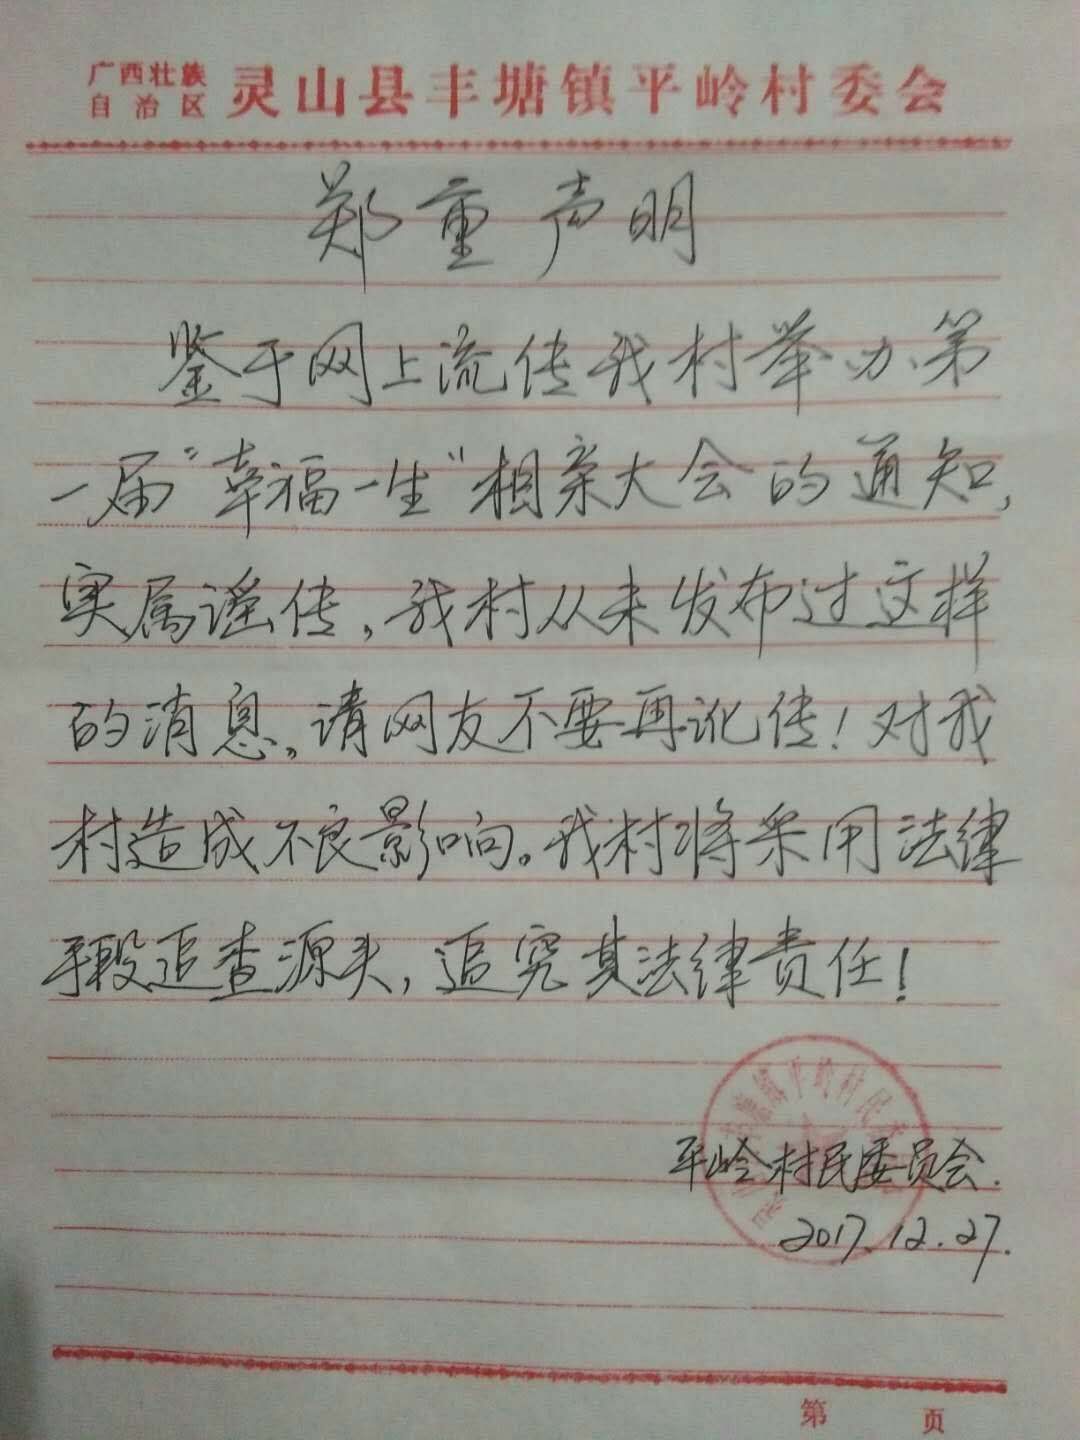 广西壮族
自治区
灵山县丰塘镇平岭村委会
郑重声明
鉴于网上流传我村举办第
一届“幸福一生“相亲大会的通知,
实属谣传,我村从未发布过这样
的消息。请网友不要再讹传!对我
村造成不良影响。我村将采用法律
手段追查源头,追究其法律责任!
塘镇平岭村民委
平岭村民委员会.
2017.12.27.
第 页